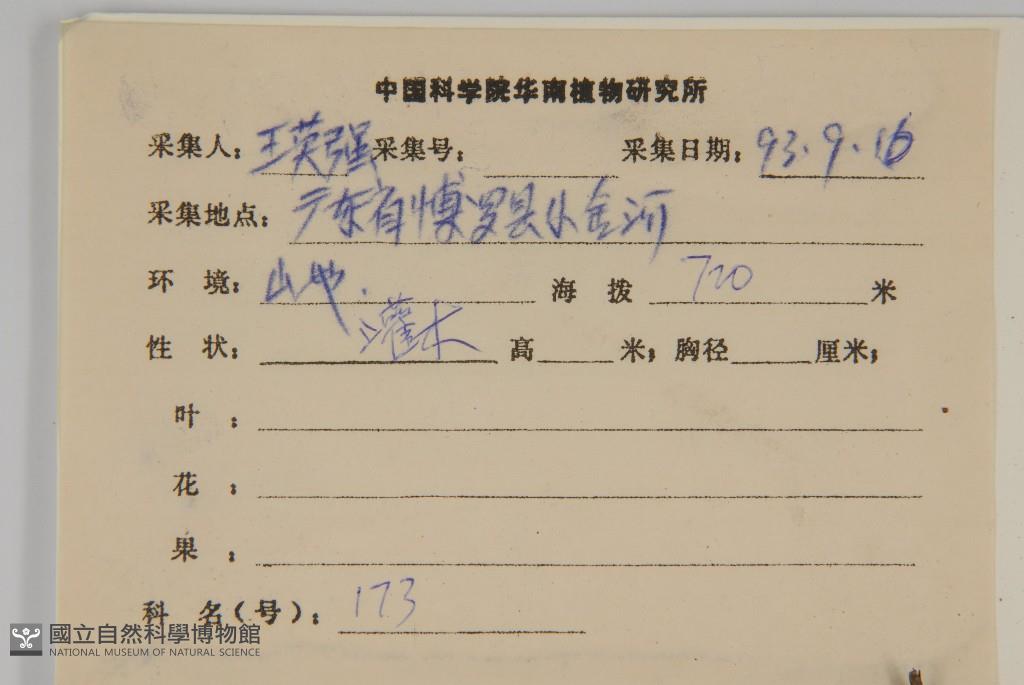 中国科学院华南植物研究所
采集人：王英强 采集号： 采集日期：93.9.16
采集地点：广东省博罗县小金河
环 境：山地. 海 拨 720 米
性 状：灌木 高 米；胸径 厘米；
叶 ：
花 ：
果 ：
科 名(号)：173
國立自然科學博物館
NATIONAL MUSEUM OF NATURAL SCIENCE